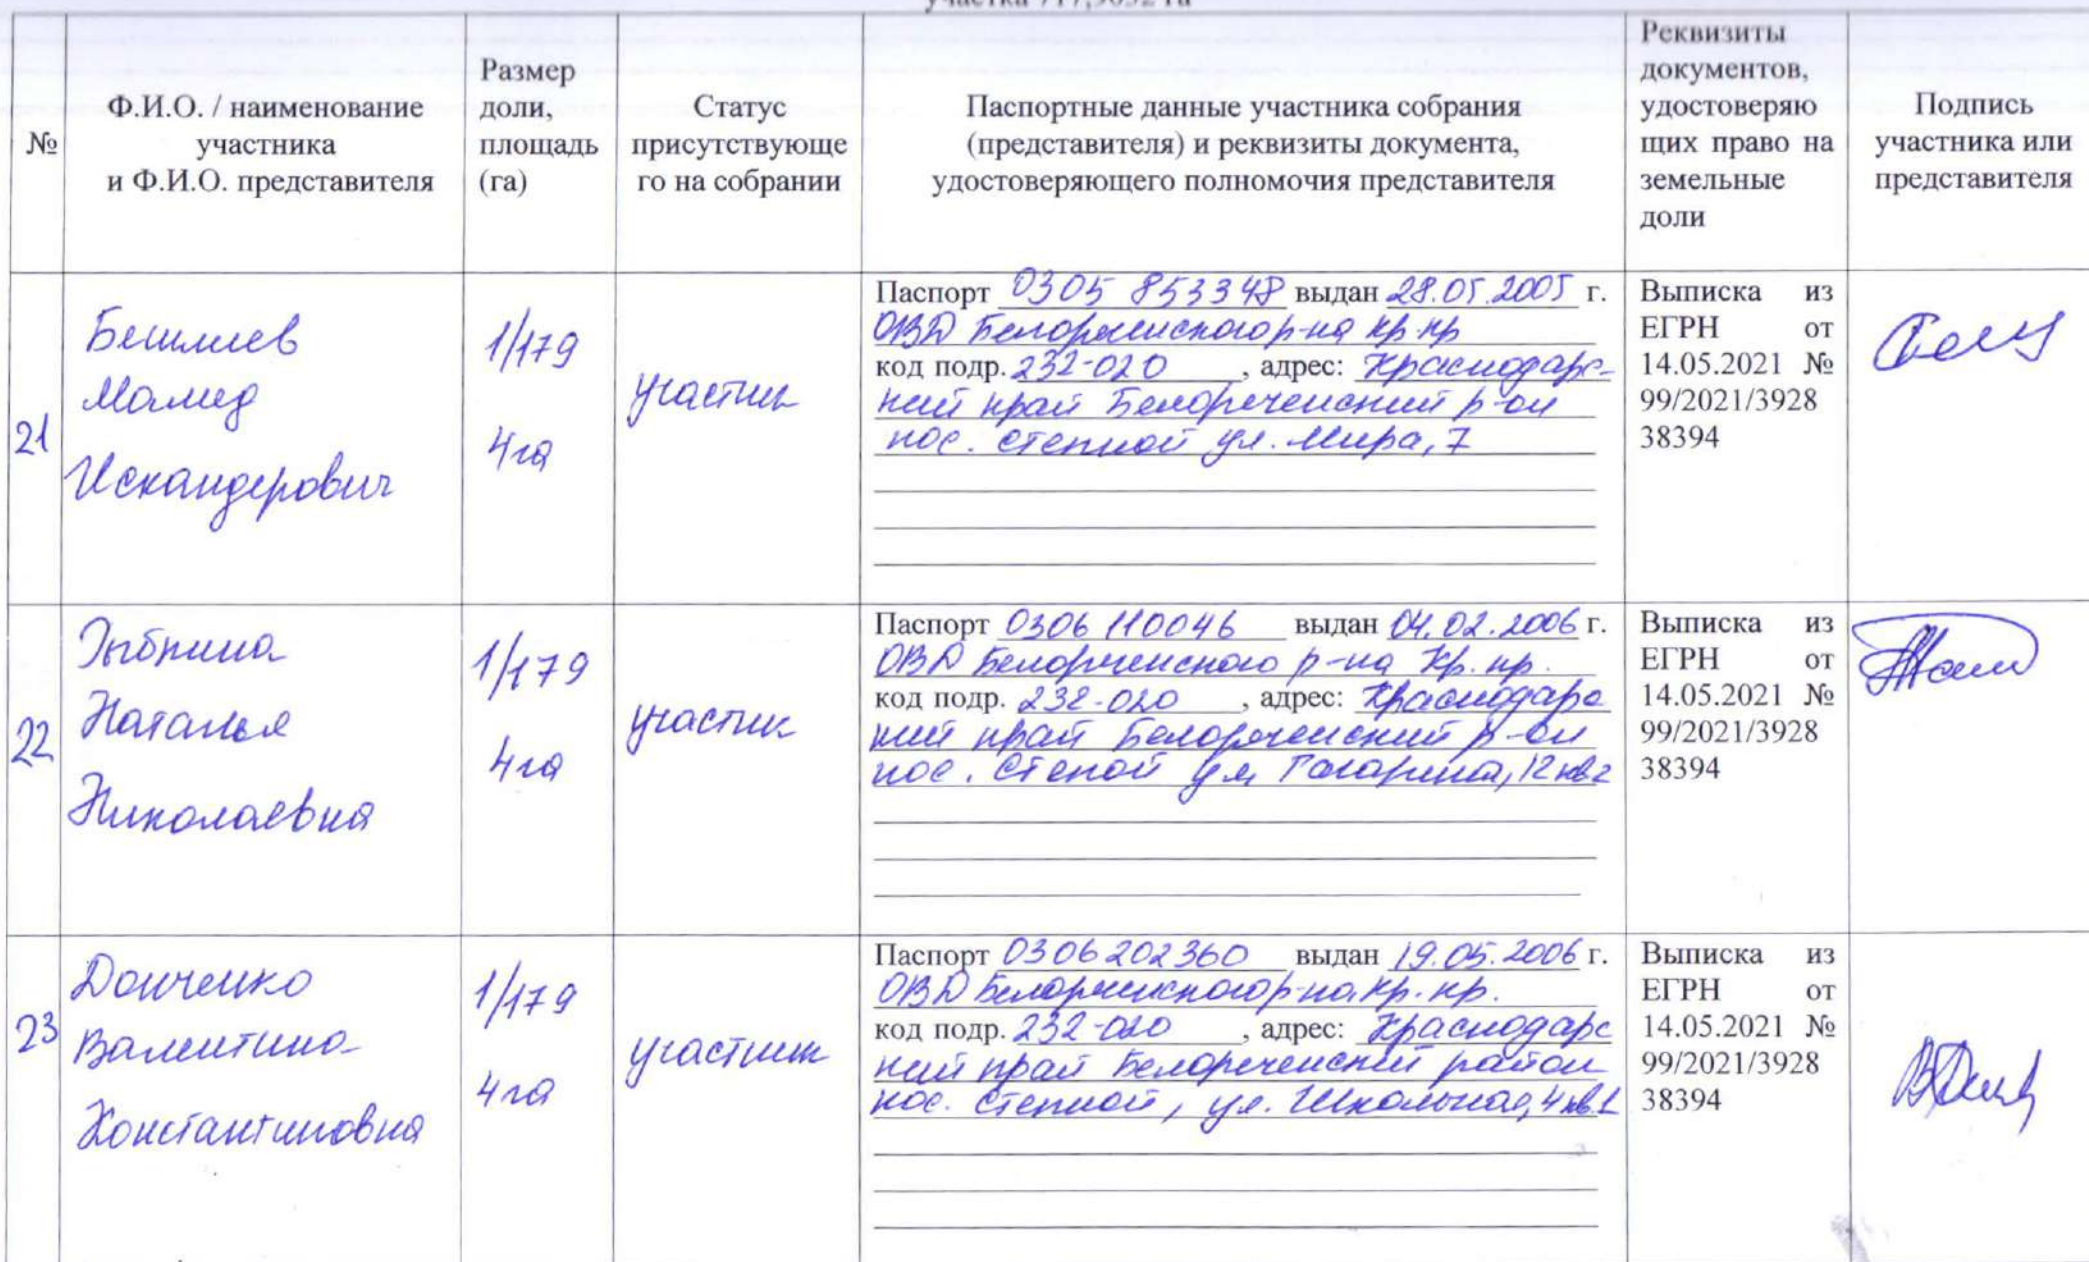 участка 717,9052 га
№
Ф.И.О. / наименование
участника
и Ф.И.О. представителя
Размер
доли,
площадь
(га)
Статус
присутствующе
го на собрании
Паспортные данные участника собрания
(представителя) и реквизиты документа,
удостоверяющего полномочия представителя
Реквизиты
документов,
удостоверяю
щих право на
земельные
доли
Подпись
участника или
представителя
21
Бешлиев
Мамед
Искандерович
1/179
4га
участник
Паспорт 0305 853348 выдан 28.05.2005 г.
ОВД Белореченского р-на кр.кр
код подр. 232-020, адрес: Краснодарс-
кий край Белореченский р-он
пос. степной ул. Мира, 7
Выписка из
ЕГРН от
14.05.2021 №
99/2021/3928
38394
22
Наталья
Николаевна
1/179
4га
участник
Паспорт 0306 110046 выдан 04.02.2006 г.
ОВД Белореченского р-на Кр. кр.
код подр. 232-020, адрес: Краснодарс
кий край Белореченский р-он
пос. Степой ул. Гагарина, 12 кв 2
Выписка из
ЕГРН от
14.05.2021 №
99/2021/3928
38394
23
Донченко
Валентина
Константиновна
1/179
4га
участник
Паспорт 0306 202360 выдан 19.05.2006 г.
ОВД Белореченского р-на. Кр. кр.
код подр. 232-020, адрес: Краснодарс
кий край Белореченский район
пос. Степной, ул. Школьная, 4 кв. 1
Выписка из
ЕГРН от
14.05.2021 №
99/2021/3928
38394